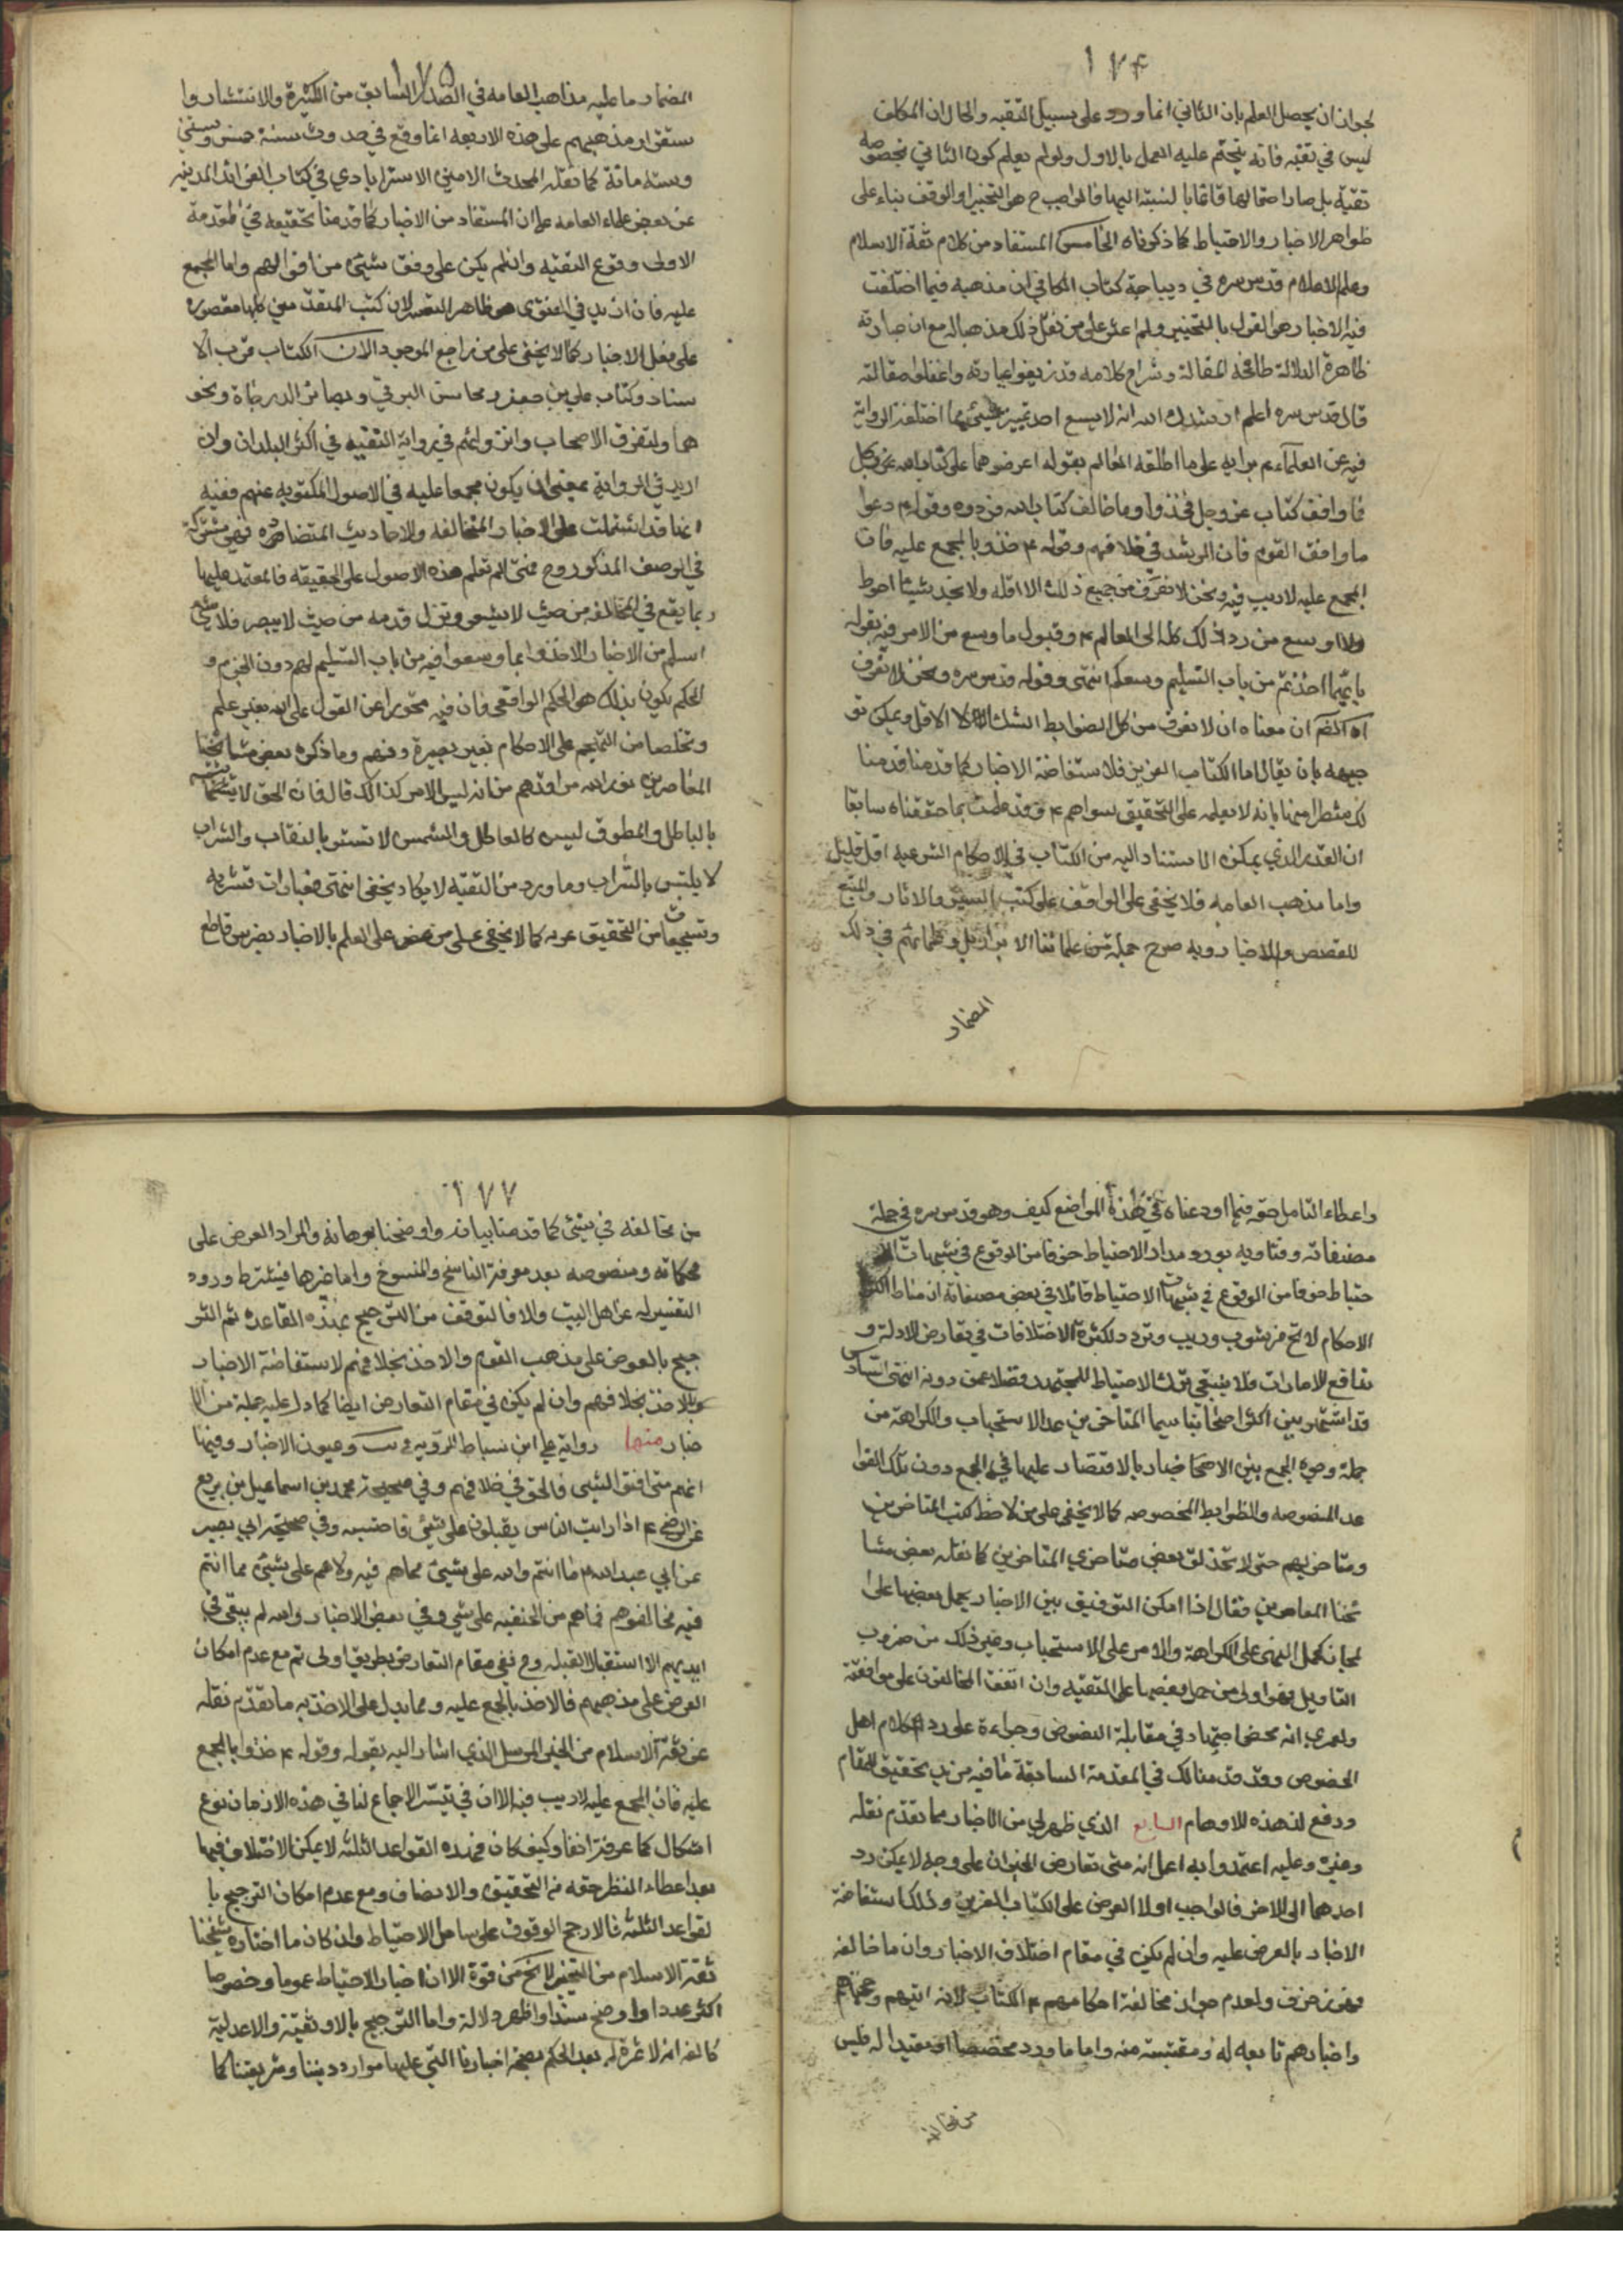 ١٧۴
لجواز ان يحصل العلم بان الثاني انما ورد على سبيل التقيه والحال ان المكلف
ليس في تقيه فانه يتحتم عليه العمل بالاول ولو لم يعلم كون الثاني بخصوصه
تقية بل صار احتمالهما قائما بالنسبة اليهما فالواجب ح هو التخيير او الوقف بناء على
ظواهر الاخبار والاحتياط كما ذكرناه الخامس المستفاد من كلام ثقة الاسلام
وعلم الاعلام قدس سره في ديباجة كتاب الكافي ان مذهبه فيما اختلفت
فيه الاخبار هو القول بالتخيير ولم اعثر على من نقل ذلك مذهبا له مع ان عبارته
ظاهرة الدلالة طافحة المقالة وشراح كلامه قد زيفوا عبارته واغفلوا مقالته
قال قدس سره اعلم ارشدك الله انه لا يسع احد تمييز شيئ مما اختلفة الرواية
فيه عن العلماء ع برايه على ما اطلقه العالم بقوله اعرضوهما على كتاب الله عز وجل
فما وافق كتاب عز وجل فخذوا وما خالف كتاب الله فردوه وقوله ع دعوا
ما وافق القوم فان الرشد في خلافهم وقوله ع خذو بالمجمع عليه فان
المجمع عليه لا ريب فيه ونحن لا نعرف من جميع ذلك الا اقله ولا نجد شيئا احوط
ولا اوسع من رد ذلك كله الى العالم ع وقبول ما وسع من الامر فيه بقوله
بايهما اخذتم من باب التسليم وسعكم انتهى وقوله قدس سره ونحن لا نعرف
اه الضم ان معناه ان لا نعرف من كل الضوابط الثلث الا الاقل ويمكن تو
جيهه بان يقال اما الكتاب العزيز فلاستفاضة الاخبار كما قدمنا قدمنا
لك شطرا منها بانه لا يعلمه على التحقيق سواهم ع وقد علمت بما حققناه سابقا
ان القدر الذي يمكن الاستناد اليه من الكتاب في الاحكام الشرعيه اقل قليل
واما مذهب العامه فلا يخفى على الواقف على كتب السير والاثار والمتتبع
للقصص والاخبار وبه صرح جملة من علمائنا الابرار بل وعلمائهم في ذلك
المضمار
١٧۵
المضمار ما عليه مذاهب العامه في الصدر السابق من الكثرة والانتشار وا
ستقرار مذهبهم على هذه الاربعه انما وقع في حدوث سنة خمس وستين
وستمائة كما نقله المحدث الامين الاسترابادي في كتاب الفوائد المدنيه
عن بعض علماء العامه على ان المستفاد من الاخبار كما قدمنا تحقيقه في المقدمة
الاولى وقوع التقيه وان لم يكن على وفق شيئ من اقوالهم واما المجمع
عليه فان اريد في الفتوى فهو ظاهر التعسر لان كتب المتقدمين كلها مقصوره
على نقل الاخبار كما لا يخفى على من راجع الموجود الان الكتاب قرب الا
سناد وكتاب علي بن جعفر ومحاسن البرقي وبصائر الدرجاة ونحو
هما ولتفرق الاصحاب وانزوائهم في رواية التقيه في اكثر البلدان وان
اريد في الرواية بمعنى ان يكون مجمعا عليه في الاصول المكتوبه عنهم ففيه
انما قد اشتملت على الاخبار المتخالفه والاحاديث المتضاده فهي مشتركة
في الوصف المذكور وح فمتى لم تعلم هذه الاصول على الحقيقه فالمعتمد عليها
ربما يقع في المخالفه من حيث لا يشعر وتزل قدمه من حيث لا يبصر فلا شئ
اسلم من الاخبار الاخذوا بما وسعوا فيه من باب التسليم لهم دون الجزم و
الحكم بكون ذلك هو الحكم الواقعي فان فيه تحررا عن القول على الله بغير علم
وتخلصا من التهجم على الاحكام بغير بصيرة وفهم وما ذكره بعض مشائخنا
المعاصرين نور الله مراقدهم من انه ليس الامر كذالك قال فان الحق لا يشتبه
بالباطل والمطوق ليس كالعاطل والشمس لا تستر بالنقاب والشراب
لا يلتبس بالسراب وما ورد من التقيه لا يكاد يخفى انتهى فعبارات قشريه
وتسجيعات من التحقيق عريه كما لا يخفى على من عض على العلم بالاخبار بضرس قاطع
واعطاء التامل حقه فيما اودعناه في هذة المواضع كيف وهو قدس سره في جملة
مصنفاته وفتاويه يدور مدار الاحتياط خوفا من الوقوع في شبهات الا
حتياط خوفا من الوقوع في شبهات الاحتياط قائلا في بعض مصنفاته ان مناط اكثر
الاحكام لا تخ من شوب وريب وتردد لكثرة الاختلافات في تعارض الادلة و
تدافع الامارات فلا ينبغي ترك الاحتياط للمجتهد فضلا عمن دونه انتهى السادس
قد اشتهر بين اكثر اصحابنا سيما المتاخرين عد الاستحباب والكراهة من
جملة وجوه الجمع بين الاخبار بالاقتصار عليها في الجمع دون تلك القوا
عد المنصوصه والضوابط المخصوصه كما لا يخفى على من لاحظ كتب المتاخرين
ومتاخريهم حتى لا تخذلق بعض متاخري المتاخرين كما نقله بعض مشا
ئخنا المعاصرين فقال اذا امكن التوفيق بين الاخبار بحمل بعضها على
لمجاز كحمل النهى على الكراهة والامر على الاستحباب وغير ذلك من ضروب
التاويل فهو اولى من حمل بعضها على التقيه وان اتفق المخالفون على موافقته
ولعمري انه محض اجتهاد في مقابلة النصوص وجراءة على رد كلام اهل
الخصوص وقد قدمنا لك في المقدمة السابقة ما فيه مزيد تحقيق للمقام
ودفع لهذه الاوهام السابع الذي ظهر لي من الاخبار مما تقدم نقله
وغيره وعليه اعتمد وابه اعمل انه متى تعارض الخبران على وجه لا يمكن رد
احدهما الى الاخر فالواجب اولا العرض على الكتاب العزيز وذلك استفاضة
الاخبار بالعرض عليه وان لم يكن في مقام اختلاف الاخبار وان ما خالفه
فهو زخرف ولعدم جواز مخالفة احكامهم ع الكتاب لانه اتيهم وحجتهم
واخبارهم تابعه له ومقتبسة منه واما ما ورد مخصصا او مقيدا له فليس
من مخالفه
١٧٧
من مخالفه في شيئ كما قدمنا بيانه واوضحنا برهانه والمراد العرض على
محكماته ومنصوصه بعد معرفة الناسخ والمنسوخ واما غيرها فيشترط ورود
التفسير له عن اهل البيت والا فالتوقف من الترجيح بهذه القاعده ثم التر
جيح بالعرض على مذهب القوم والاخذ بخلافهم لاستفاضة الاخبار
بالاخذ بخلافهم وان لم يكن في مقام التعارض ايضا كما دل عليه جملة من الا
خبار منها رواية علي ابن اسباط المرويه في يب وعيون الاخبار وفيها
انهم متى افتو الشيئ فالحق في خلافهم وفي صحيحة محمد بن اسماعيل بن بزيع
عن الرضى ع اذا رايت الناس يقبلون على شيئ فاجتنبه وفي صحيحة ابي بصير
عن ابي عبد الله ع ما انتم والله على شيئ مما هم فيه ولا هم على شيئ مما انتم
فيه فخالفوهم فما هم من الحنفيه على شي وفي بعض الاخبار والله لم يبقى في
ايديهم الا استقبال القبله وح ففي مقام التعارض بطريق اولى ثم مع عدم امكان
العرض على مذهبهم فالاخذ بالمجمع عليه ومما يدل على الاخذ به ما تقدم نقله
عن ثقة الاسلام من الخبر المرسل الذي اشار اليه بقوله وقوله ع خذوا بالمجمع
عليه فان المجمع عليه لا ريب فيه الا ان في تيسر الاجماع لنا في هذه الازمان نوع
اشكال كما عرفته انفا وكيف كان فهذه القواعد الثلثه لا يمكن الاختلاف فيها
بعد اعطاء النظر حقه من التحقيق والانصاف ومع عدم امكان الترجيح با
لقواعد الثلثه فالارجح الوقوف على ساحل الاحتياط وان كان ما اختاره شيخنا
ثقة الاسلام من التخيير لا يخ من قوة الا ان اخبار الاحتياط عموما وخصوصا
اكثر عددا واوضح سندا واظهر دلالة واما الترجيح بالاوثقية والاعدلية
فالض انه لا ثمرة له بعد الحكم بصحة اخبارنا التي عليها موارد ديننا وشريعتنا كما